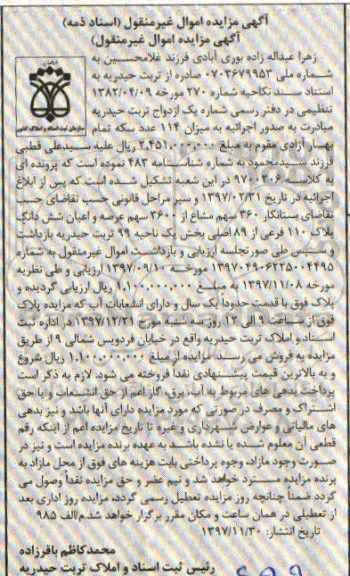 آگهی مزایده اموال غیرمنقول (اسناد ذمه)
آگهی مزایده اموال غیرمنقول)
زهرا عبداله زاده بوری آبادی فرزند غلامحسین به
شماره ملی ۰۷۰۳۶۷۹۹۵۳ صادره از تربت حیدریه به
استناد سند نکاحیه شماره ۲۷۰ مورخه ۱۳۸۲/۰۴/۰۹
تنظیمی در دفتر رسمی شماره یک ازدواج تربت حیدریه
مبادرت به صدور اجرائیه به میزان ۱۱۴ عدد سکه تمام
بهار آزادی مقوم به مبلغ ۲.۴۵۱.۰۰۰.۰۰۰ ریال علیه سیدعلی قطبی
فرزند سیدمحمود به شماره شناسنامه ۴۸۳ نموده است که پرونده ای
به کلاسه ۹۷۰۰۲۰۶ در این شعبه تشکیل شده است که پس از ابلاغ
اجرائیه در تاریخ ۱۳۹۷/۰۲/۳۱ و سیر مراحل قانونی حسب تقاضای حسب
تقاضای بستانکار ۳۶۰ سهم مشاع از ۳۶۰۰ سهم عرصه و اعیان شش دانگ
پلاک ۱۱۰ فرعی از ۸۹ اصلی بخش یک ناحیه ۹۹ تربت حیدریه بازداشت
و سپس طی صورتجلسه ارزیابی و بازداشت اموال غیرمنقول به شماره
۱۳۹۷۰۴۹۰۶۲۲۵۰۰۴۴۹۵ مورخه ۱۳۹۷/۰۹/۱۰ ارزیابی و طی نظریه
مورخه ۱۳۹۷/۱۱/۰۸ به مبلغ ۱.۱۰۰.۰۰۰.۰۰۰ ریال ارزیابی گردیده و
پلاک فوق با قدمت حدوداً یک سال و دارای انشعابات آب که مزایده پلاک
فوق از ساعت ۹ الی ۱۲ روز سه شنبه مورخ ۱۳۹۷/۱۲/۲۱ در اداره ثبت
اسناد و املاک تربت حیدریه واقع در خیابان فردوسی شمالی ۹ از طریق
مزایده به فروش می رسد. مزایده از مبلغ ۱.۱۰۰.۰۰۰.۰۰۰ ریال شروع
و به بالاترین قیمت پیشنهادی نقدا فروخته می شود. لازم به ذکر است
پرداخت بدهی های مربوط به آب، برق، گاز اعم از حق انشعاب و یا حق
اشتراک و مصرف در صورتی که مورد مزایده دارای آنها باشد و نیز بدهی
های مالیاتی و عوارض شهرداری و غیره تا تاریخ مزایده اعم از اینکه رقم
قطعی آن معلوم شده یا نشده باشد به عهده برنده مزایده است و نیز در
صورت وجود مازاد، وجوه پرداختی بابت هزینه های فوق از محل مازاد به
برنده مزایده مسترد خواهد شد و نیم عشر و حق مزایده نقداً وصول می
گردد ضمناً چنانچه روز مزایده تعطیل رسمی گردد، مزایده روز اداری بعد
از تعطیلی در همان ساعت و مکان مقرر برگزار خواهد شد.م/الف ۹۸۵
تاریخ انتشار: ۱۳۹۷/۱۱/۳۰
محمدکاظم باقرزاده
رئیس ثبت اسناد و املاک تربت حیدریه